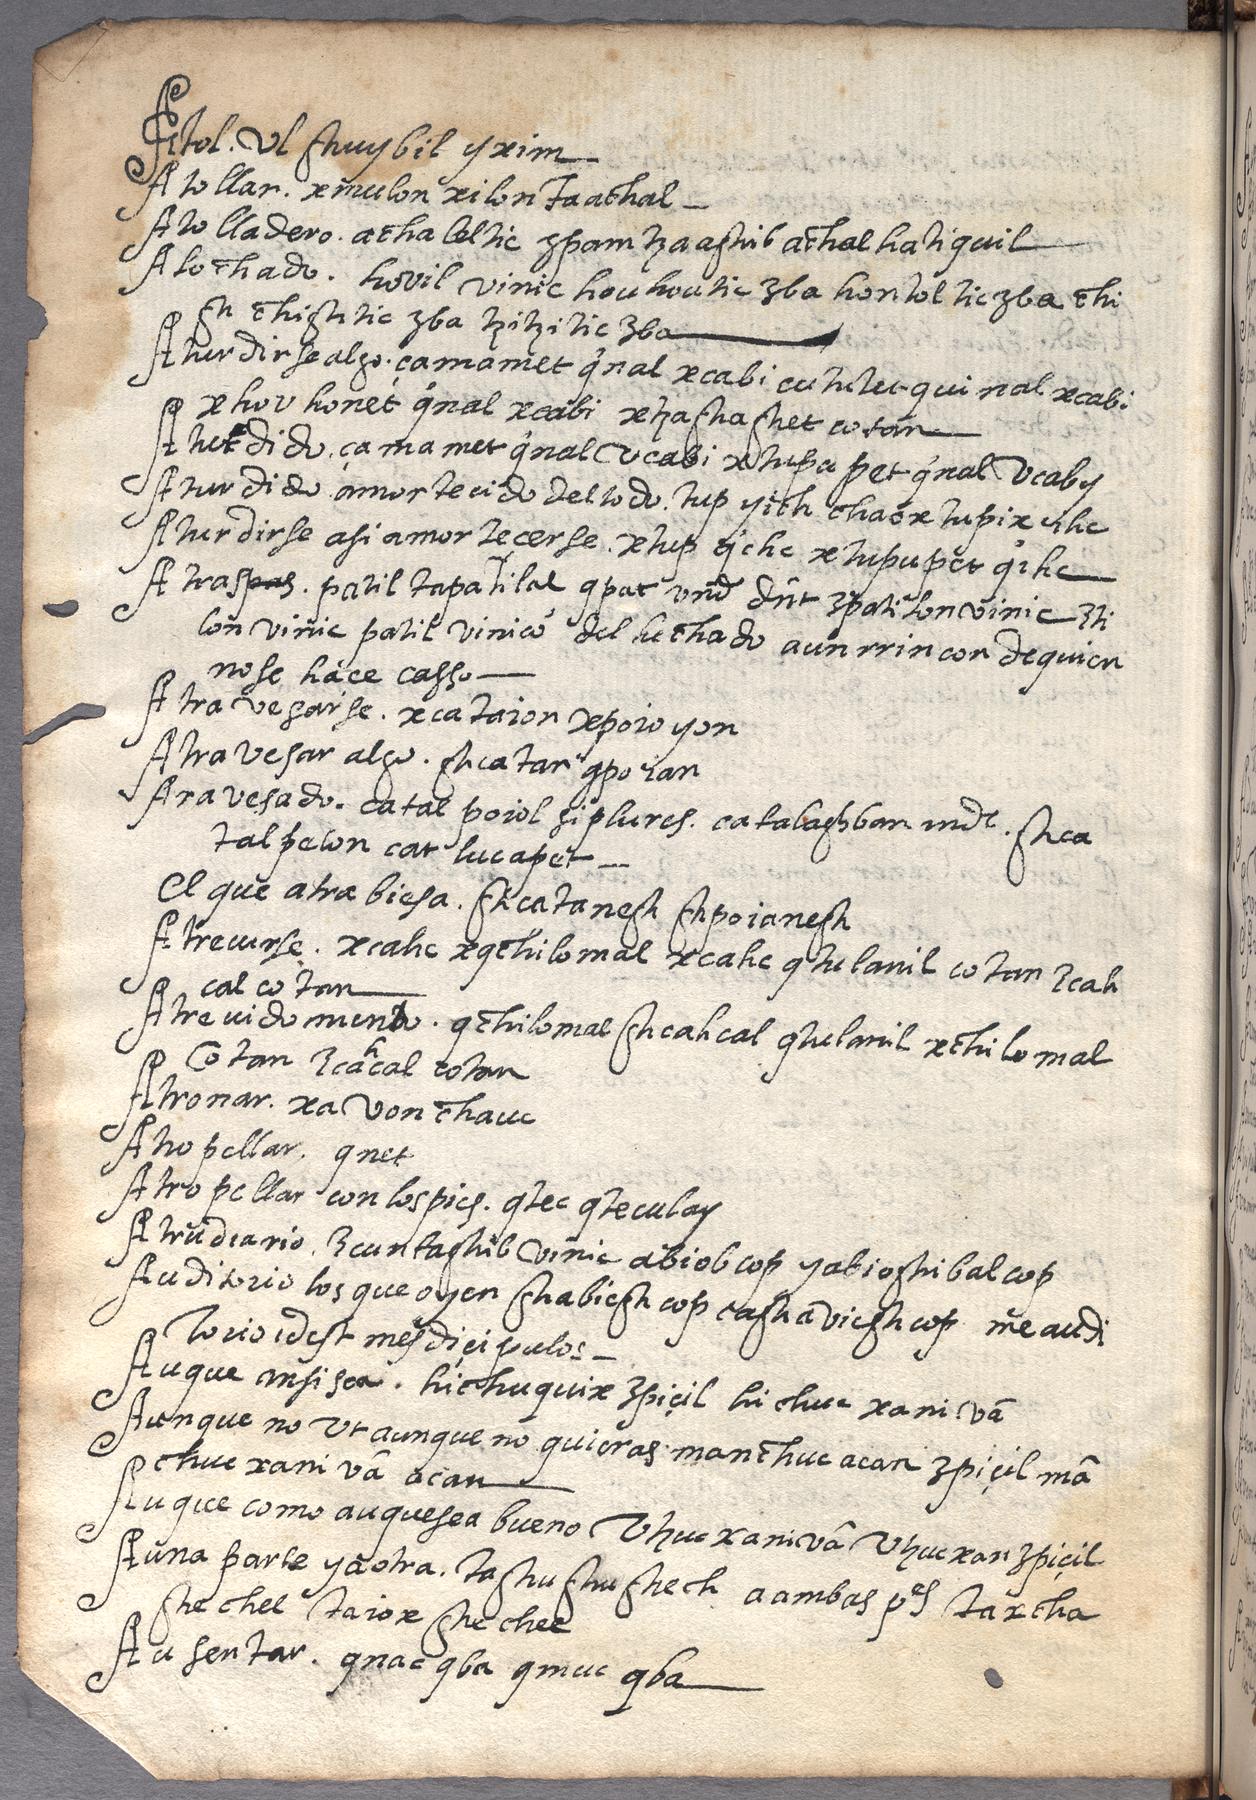 Atol. Vl shuybil yxim
Atollar. xmulon xilon ta achal
Atolladero. achaleltic zpam tza ashib achal hatiquil
Atochado. hovil vinic houhoutic zba hontoltic zba chi
sh chishtic zba tzitzitic zba
Aturdirse algo. çamamet q̃nal xcabi cututet quinal xcabi
xhovhonet q̃nal xcabi xtzashashet cotan
Aturdido. çamamet q̃nal vcabi xtupu pet q̃nal vcaby
Aturdido amortecido del todo. tup yich chaox tupix yhc
Aturdirse asi amortecerse. xtup q̃chc xtupupet q̃ihc
Atras. patil tapatilal qpat vnd dn̄t zpatil lon vinic zti
lon vinic patil vinico del hechado aun rrincon dequien
nose hace casso
Atravesarse. xcataion xpoioyon
Atravesar algo. shcatan qpoian
Aravesado. catal poiol si plures. catalashban md̄e. shca
talpelon cat lucapet
El que atrabiesa. shcatanesh shpoianesh
Atreverse. xcahc xqchilomal xcahc qtulanil cotan zcah
cal cotan
Atrevidomento. qchilomal shcahcal qtulanil xchilomal
cotan zcahcal cotan
Atronar. xavon chauc
Atropellar. qnet
Atropellar con los pies. qtec qteculay
Atrudiario. zcuntashib vinic abiob cop yabioshibal cop
Auditorio los que oyen shabiesh cop cashaviesh cop me audi
torio idest mes diçipulos
Auque insisea. hichuquix zpiçil hichuc xani vā
Aunque no vt aunque no quieras manchuc acan zpiçil mā
chuc xani vā acan
Auque como auquesea bueno Vtzuc xanivā Vtzuc xan zpiçil
Auna parte yaotra. ta shushushech aambas pes taxcha
shechel taiox shechee
Ausentar. qnac qba qmuc qba